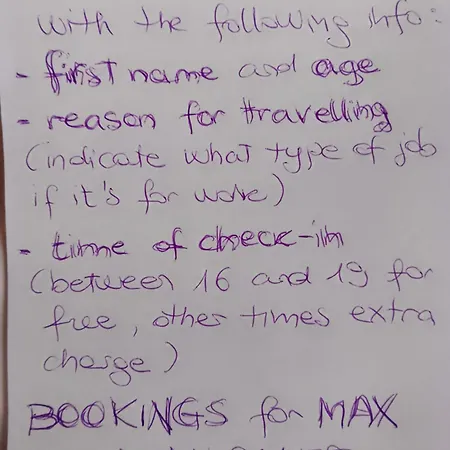 with the following info:
- first name and age
- reason for travelling
(indicate what type of job
if it's for work)
- time of check-in
(between 16 and 19 for
free, other times extra
charge)
BOOKINGS for MAX